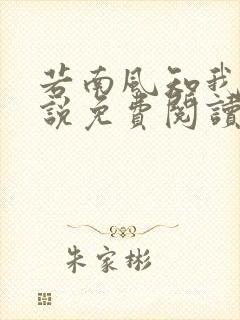 若南风知我
說免費閱讀
朱家彬